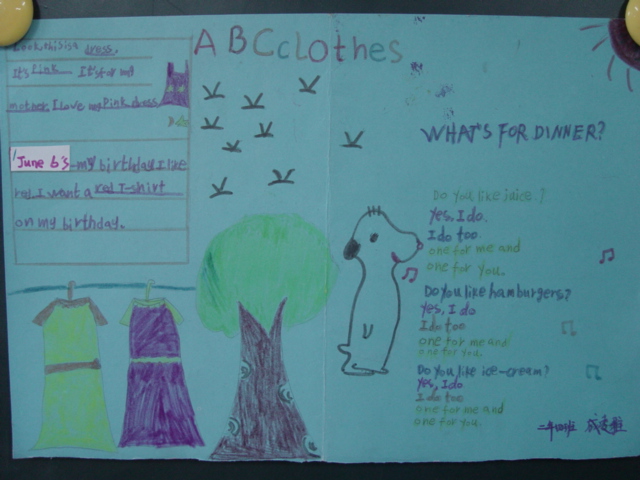 ABCclothes
Look, this is a dress.
It's Link It's for my
mother. I love my Pink dress
June 6's my birthday. I like
red. I want a red T-shirt
on my birthday.
WHAT'S FOR DINNER?
Do you like juice?
Yes, I do.
I do too.
one for me and
one for you.
Do you like hamburgers?
yes, I do
I do too
one for me and
one for you.
Do you like ice-cream?
yes, I do
I do too
one for me and
one for you.
二年四班